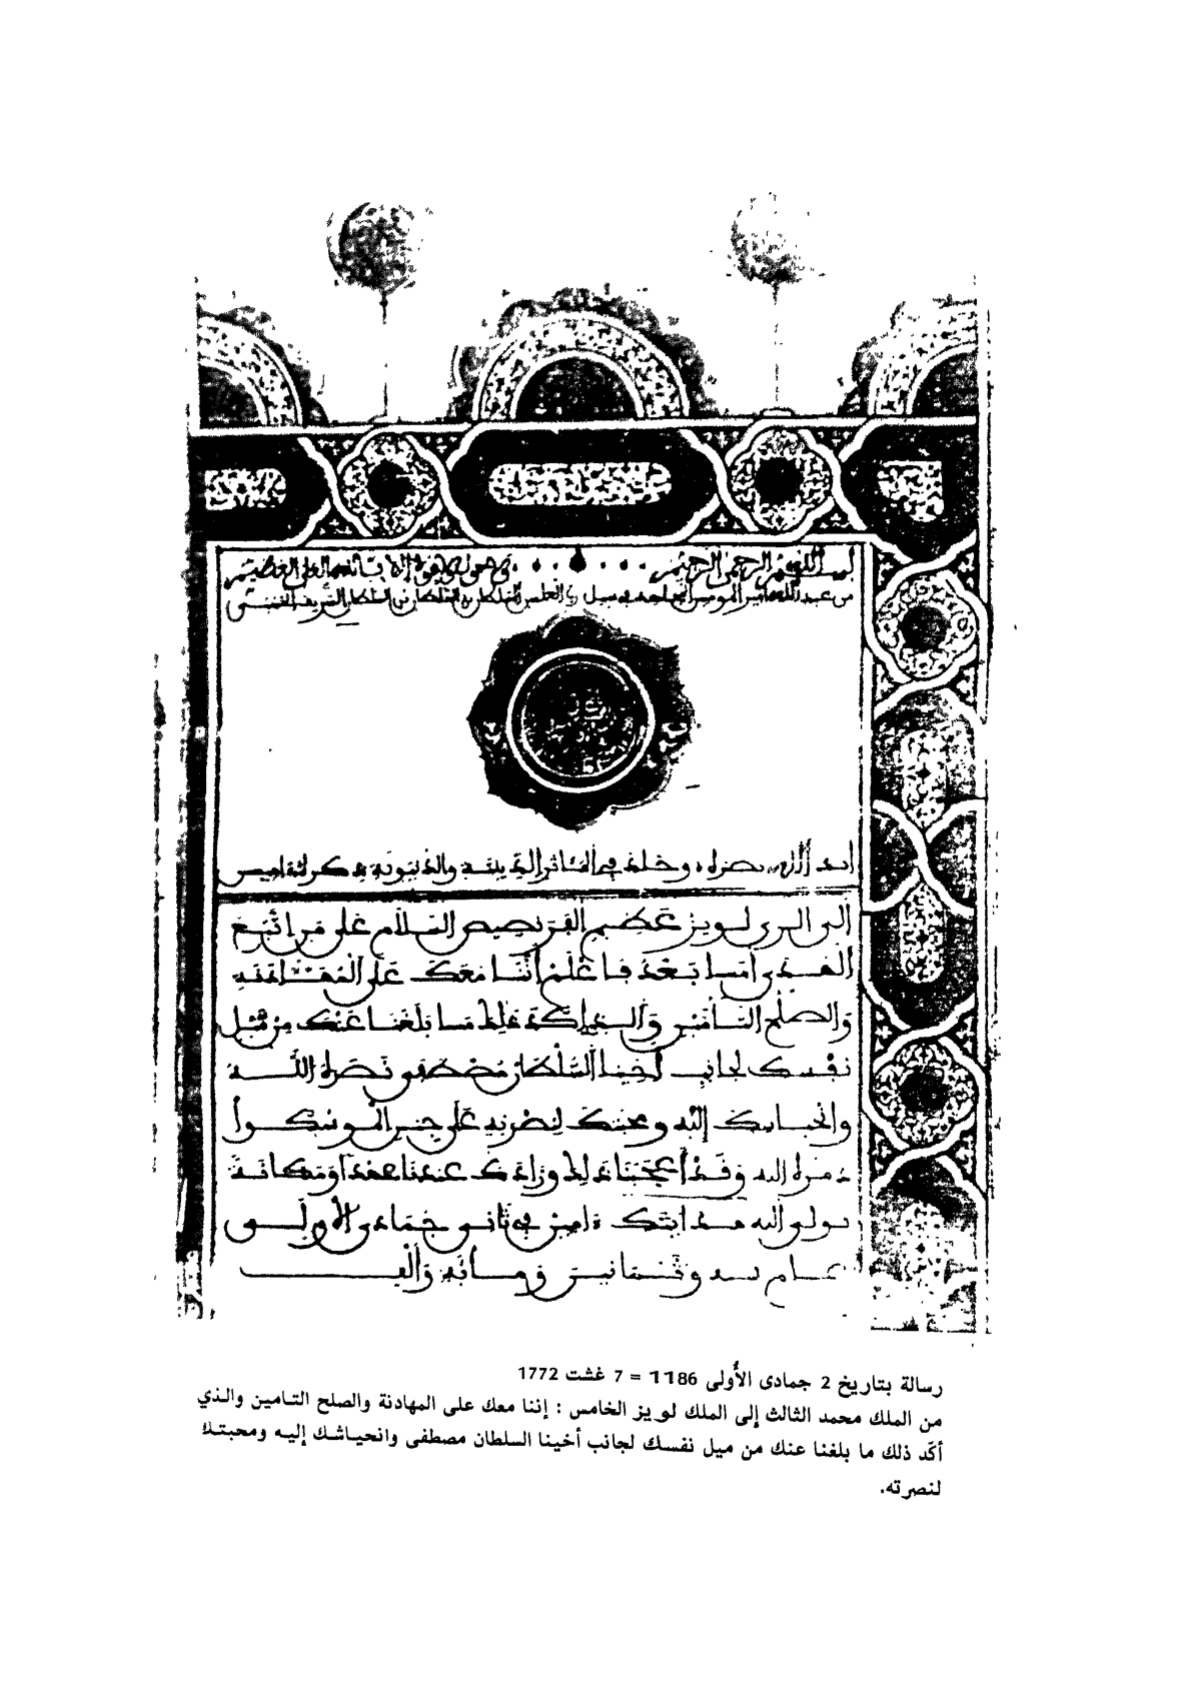 بسم الله الرحمن الرحيم ولا حول ولا قوة إلا بالله العلي العظيم
من عبد الله أمير المومنين المجاهد في سبيل رب العلمين السلطان بن السلطان بن السلطان الشريف الحسني
أيد الله نصره وخلد في المئاثر الدينية والدنيوية ذكره ءامين
إلى الري لويز عظيم الفرنصيص السلام على من اتبع
الهدى وأما بعد فاعلم أننا معك على المهادنة
والصلح التأمين والذي أكد ذلك ما بلغنا عنك من ميل
نفسك لجانب أخينا السلطان مصطفى نصره الله
وانحياشك إليه ومحبتك لنصرته على جنس الموسكوا
دمره الله وقد أعجبنا ذلك وزادك عندنا عهدا ومكانة
تولى الله هدايتك ءامين في ثاني جمادى الأولى
عام ستة وثمانين ومائة وألف
رسالة بتاريخ 2 جمادى الأُولى 1186 = 7 غشت 1772
من الملك محمد الثالث إلى الملك لويز الخامس : إننا معك على المهادنة والصلح التامين والذي
أكّد ذلك ما بلغنا عنك من ميل نفسك لجانب أخينا السلطان مصطفى وانحياشك إليه ومحبتك
لنصرته.